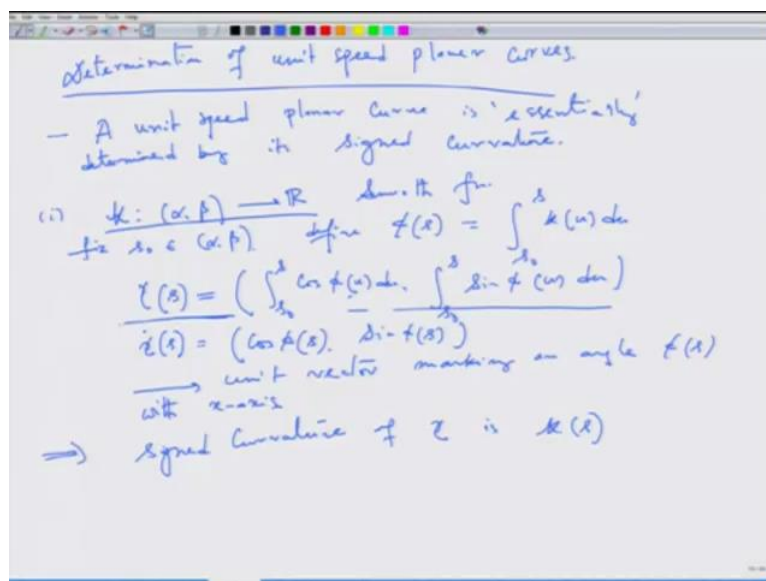 Determination of unit speed planar curves.
- A unit speed planar curve is 'essentially'
determined by its signed curvature.
(i) k: (α, β) → ℝ smooth fn.
fix s₀ ∈ (α, β). define φ(s) = ∫_{s₀}^{s} k(u) du
γ(s) = ( ∫_{s₀}^{s} cos φ(u) du, ∫_{s₀}^{s} sin φ(u) du )
γ̇(s) = (cos φ(s), sin φ(s))
→ unit vector marking an angle φ(s)
with x-axis
⇒ signed curvature of γ is k(s)